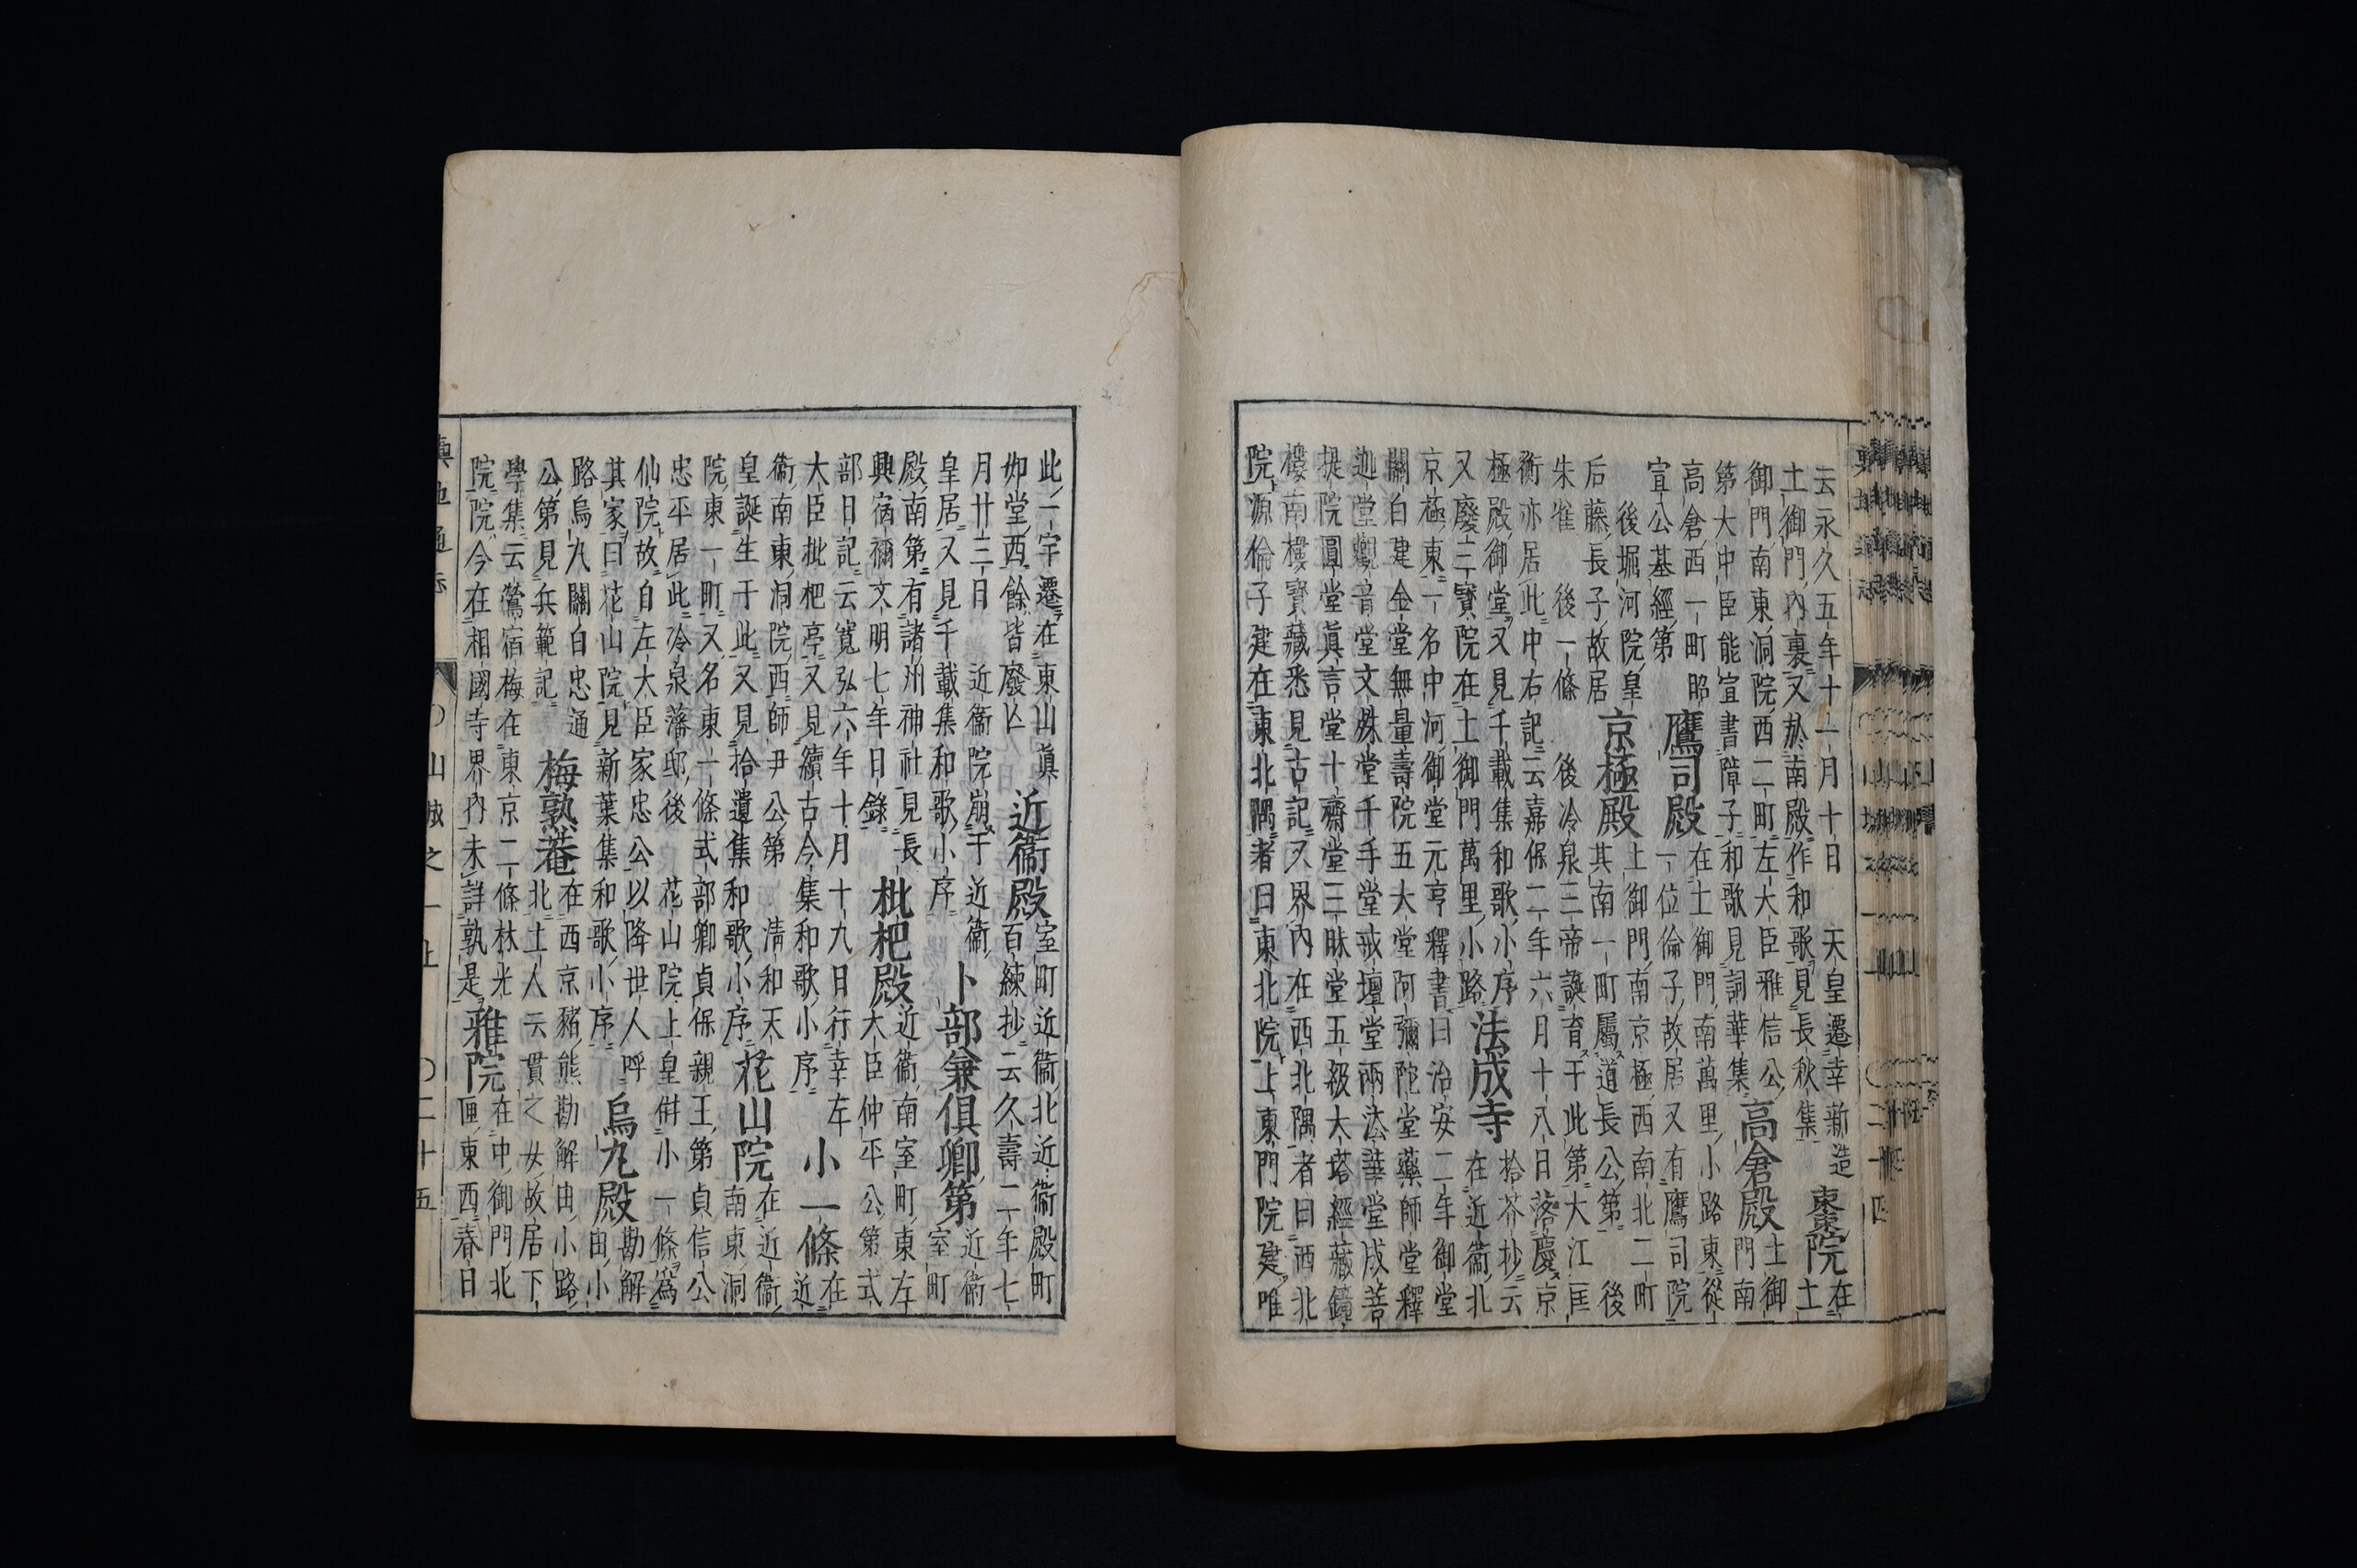 云永久五年十一月十日　天皇遷幸新造　東院在
土御門內裏又於南殿作和歌見長秋集　土
御門南東洞院西二町左大臣雅信公　高倉殿土御
第大中臣能宣書障子和歌見詞華集　門南
高倉西一町　昭　鷹司殿在土御門南萬里小路東從
宣公基經第　一位倫子故居又有鷹司院
後堀河院皇　京極殿上御門南京極西南北二町
后藤長子故居　其南一町屬道長公第　後
朱雀　後一條　後冷泉三帝誕育于此第大江匡
衡亦居此中右記云嘉保二年六月十八日落慶京
極殿御堂又見千載集和歌小序　法成寺拾芥抄云
又廢三寳院在土御門萬里小路　在近衞北
京極東一名中河御堂元亨釋書曰治安二年御堂
關白建金堂無量壽院五大堂阿彌陀堂藥師堂釋
迦堂觀音堂文殊堂千手堂戒壇堂兩法華堂成菩
提院圓堂眞言堂十齋堂三昧堂五級大塔經藏鐘
樓南樓寳藏悉見古記又界內在西北隅者曰西北
院源倫子建在東北隅者曰東北院上東門院建唯
此一宇遷在東山眞　近衞殿室町近衞北近衞殿町
如堂西餘皆廢亾　百練抄云久壽二年七
月廿三日　近衞院崩于近衞　卜部兼俱卿第近衞
皇居又見千載集和歌小序　室町
殿南第有諸州神社見長　枇杷殿近衞南室町東左
興宿禰文明七年日錄　大臣仲平公第式
部日記云寬弘六年十月十九日行幸左　小一條在
大臣枇杷亭又見續古今集和歌小序　近
衞南東洞院西師尹公第　淸和天
皇誕生于此又見拾遺集和歌小序　花山院在近衞
院東一町又名東一條式部卿貞保親王第貞信公　南東洞
忠平居此冷泉藩邸後　花山院上皇併小一條爲
仙院故自左大臣家忠公以降世人呼
其家曰花山院見新葉集和歌小序　烏丸殿勘解
路烏丸關白忠通　由小
公第見兵範記　梅熟菴在西京豬熊勘解由小路
學集云鶯宿梅在東京二條林光　北土人云貫之女故居下
院院今在相國寺界內未詳孰是　雅院在中御門北
匣東西春日
輿地通志　○山城之一上　○二十五